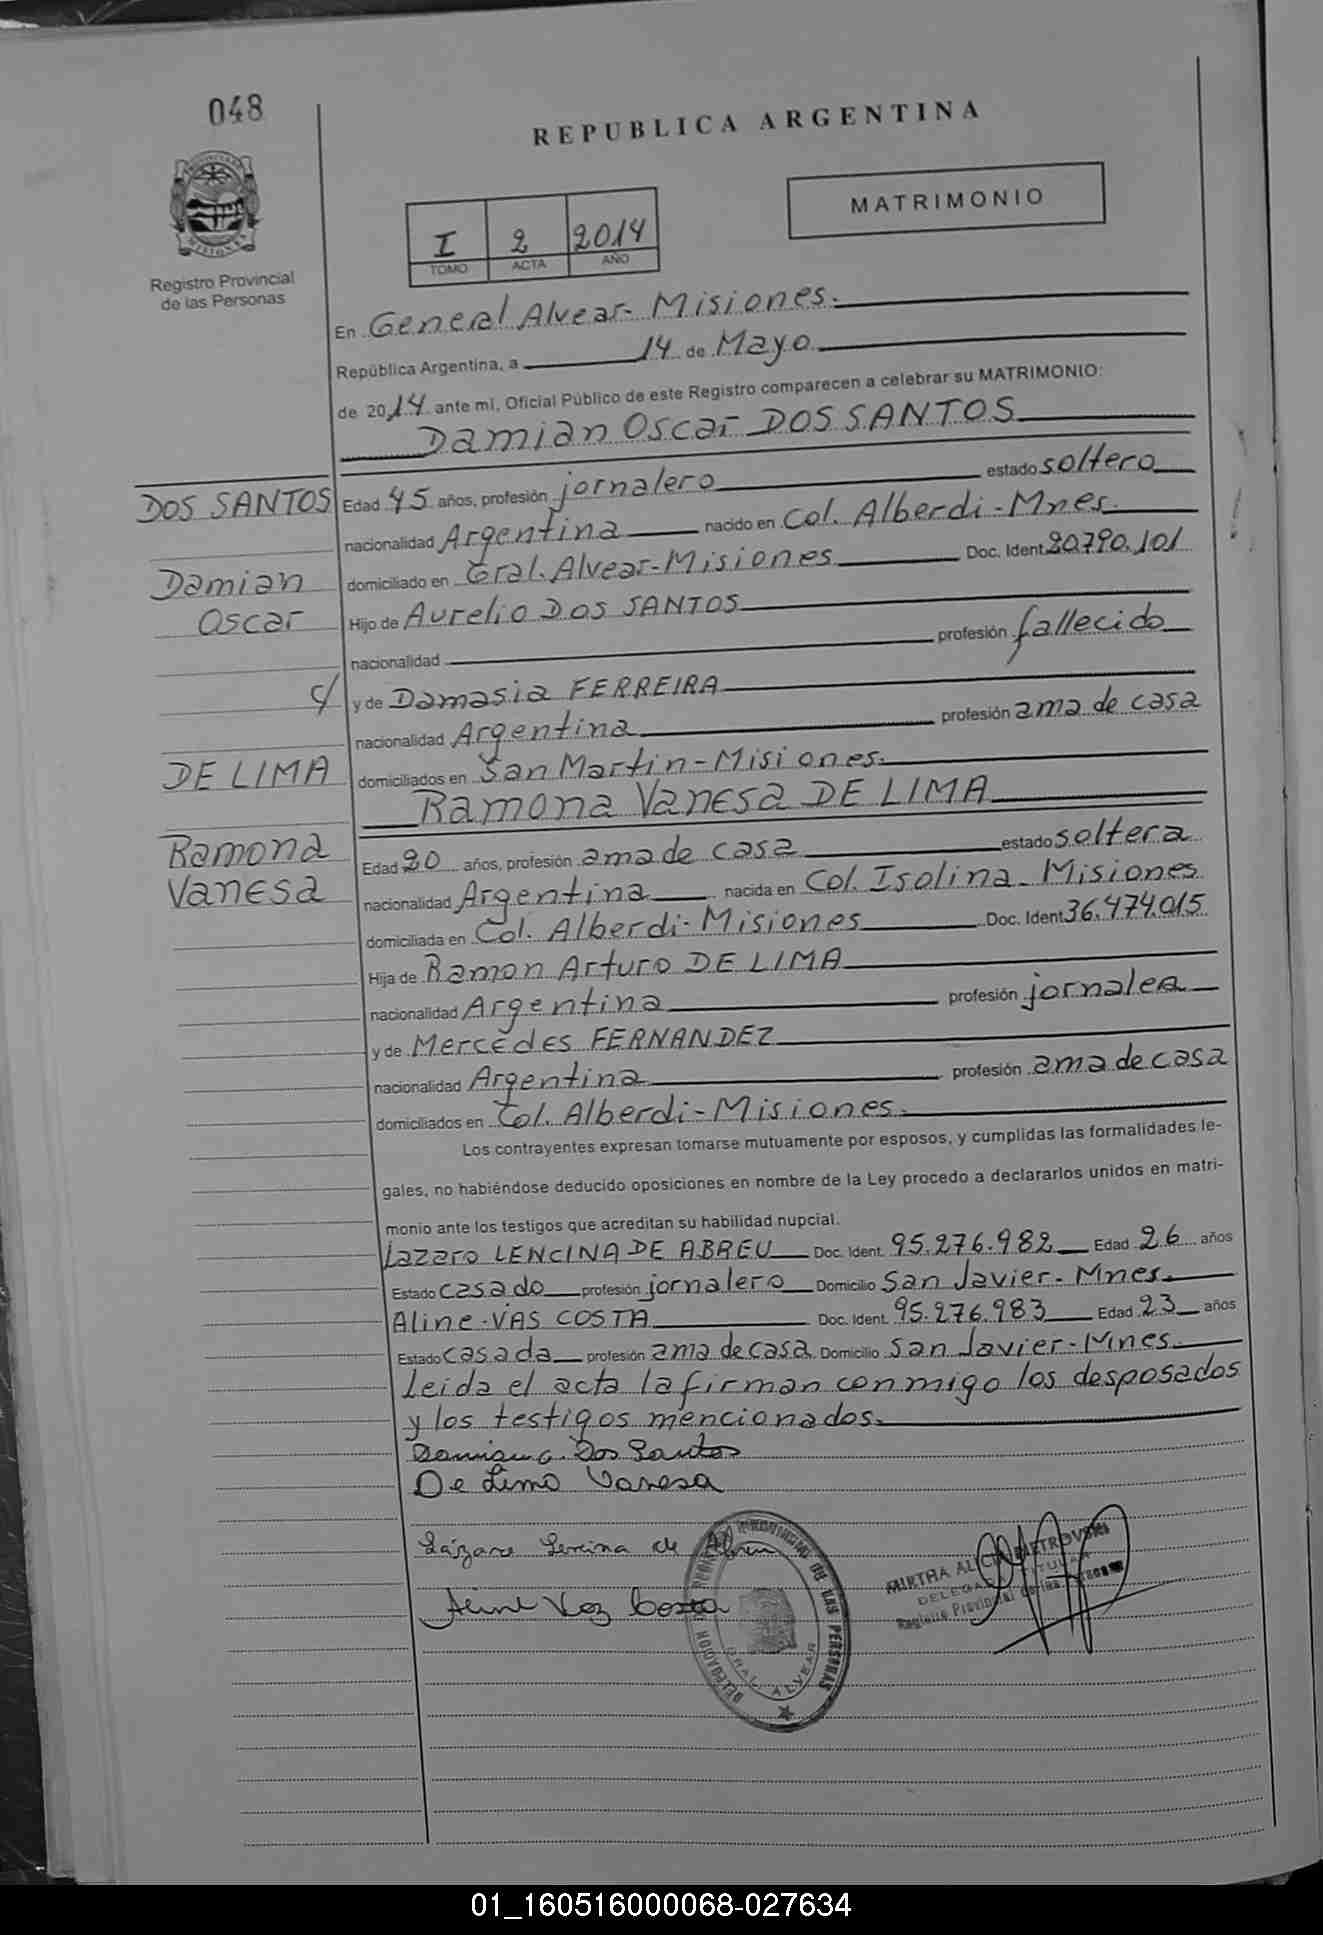 048
REPUBLICA ARGENTINA
MATRIMONIO
I 2 2014
TOMO ACTA AÑO
Registro Provincial
de las Personas
En General Alvear - Misiones.
República Argentina, a 14 de Mayo
de 2014 ante mí, Oficial Público de este Registro comparecen a celebrar su MATRIMONIO:
Damian Oscar DOS SANTOS
DOS SANTOS
Damian
Oscar
c/
DE LIMA
Ramona
Vanesa
Edad 45 años, profesión jornalero estado soltero
nacionalidad Argentina nacido en Col. Alberdi - Mnes.
domiciliado en Gral. Alvear - Misiones Doc. Ident. 20.790.101
Hijo de Aurelio DOS SANTOS
nacionalidad profesión fallecido
y de Damasia FERREIRA
nacionalidad Argentina profesión ama de casa
domiciliados en San Martin - Misiones.
Ramona Vanesa DE LIMA
Edad 20 años, profesión ama de casa estado soltera
nacionalidad Argentina nacida en Col. Isolina - Misiones
domiciliada en Col. Alberdi - Misiones Doc. Ident. 36.474.015
Hija de Ramon Arturo DE LIMA
nacionalidad Argentina profesión
y de Mercedes FERNANDEZ
nacionalidad Argentina profesión ama de casa
domiciliados en Col. Alberdi - Misiones.
Los contrayentes expresan tomarse mutuamente por esposos, y cumplidas las formalidades le-
gales, no habiéndose deducido oposiciones en nombre de la Ley procedo a declararlos unidos en matri-
monio ante los testigos que acreditan su habilidad nupcial.
Lazaro LENCINA DE ABREU Doc. Ident. 95.276.982 Edad 26 años
Estado casado profesión jornalero Domicilio San Javier - Mnes.
Aline VAS COSTA Doc. Ident. 95.276.983 Edad 23 años
Estado casada profesión ama de casa Domicilio San Javier - Mnes.
Leida el acta la firman conmigo los desposados
y los testigos mencionados.
Dos Santos
De Lima Vanesa
Lázaro Lencina de Abreu
Aline Vaz Costa
DELEGACION REGISTRO PROVINCIAL DE LAS PERSONAS
GRAL. ALVEAR
MIRTHA ALICIA PIETROVSKI
DELEGADA TITULAR
Registro Provincial de las Personas
01_160516000068-027634